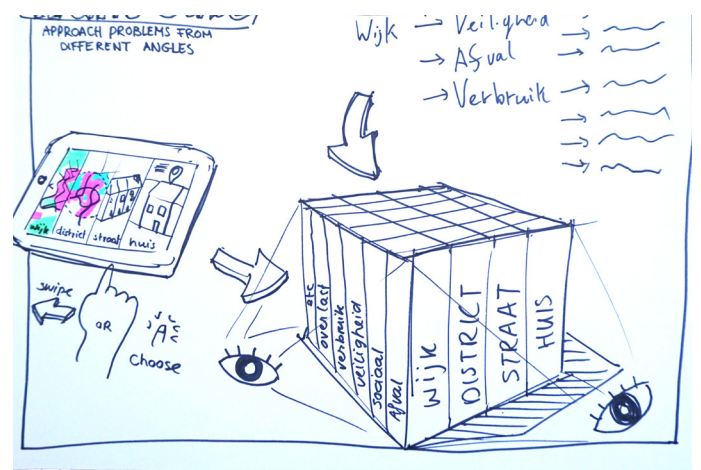 APPROACH PROBLEMS FROM
DIFFERENT ANGLES
Wijk → Veiligheid
→ Afval
→ Verbruik
wijk district straat huis
swipe
OR
choose
etc
overlast
verbruik
veiligheid
sociaal
Afval
Wijk
DISTRICT
STRAAT
HUIS